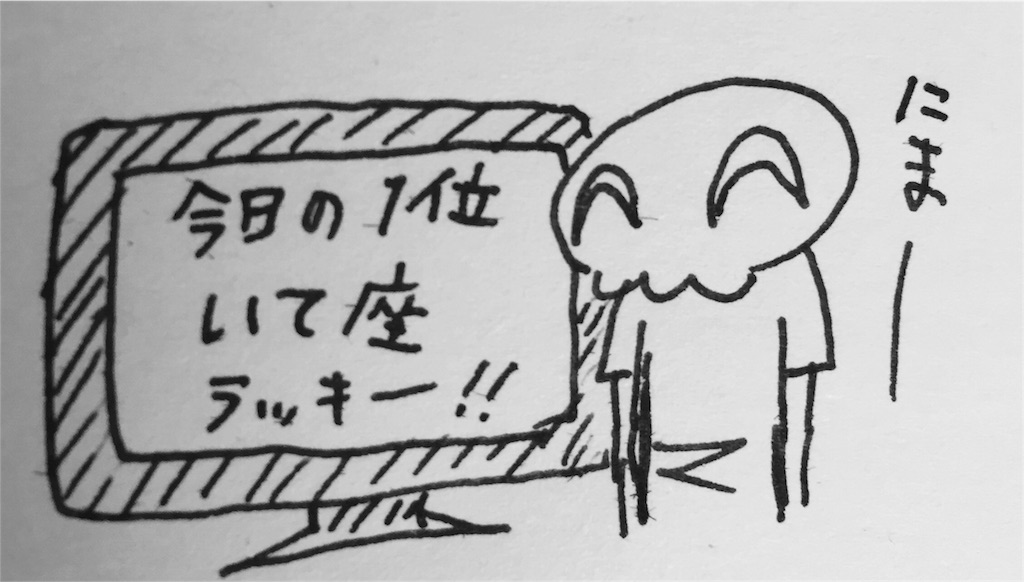 今日の1位
いて座
ラッキー!!
にまー